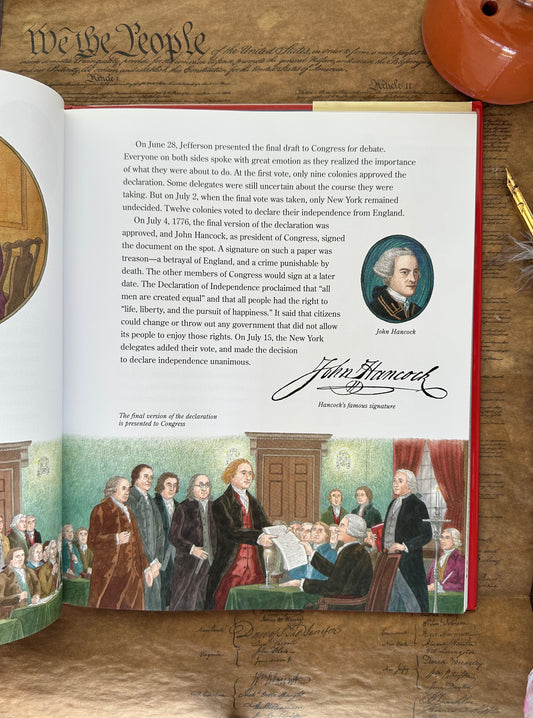 We the People of the United States, in order to form a more perfect
Article I.
Article II.
On June 28, Jefferson presented the final draft to Congress for debate.
Everyone on both sides spoke with great emotion as they realized the importance
of what they were about to do. At the first vote, only nine colonies approved the
declaration. Some delegates were still uncertain about the course they were
taking. But on July 2, when the final vote was taken, only New York remained
undecided. Twelve colonies voted to declare their independence from England.
On July 4, 1776, the final version of the declaration was
approved, and John Hancock, as president of Congress, signed
the document on the spot. A signature on such a paper was
treason—a betrayal of England, and a crime punishable by
death. The other members of Congress would sign at a later
date. The Declaration of Independence proclaimed that “all
men are created equal” and that all people had the right to
“life, liberty, and the pursuit of happiness.” It said that citizens
could change or throw out any government that did not allow
its people to enjoy those rights. On July 15, the New York
delegates added their vote, and made the decision
to declare independence unanimous.
John Hancock
John Hancock
Hancock's famous signature
The final version of the declaration
is presented to Congress